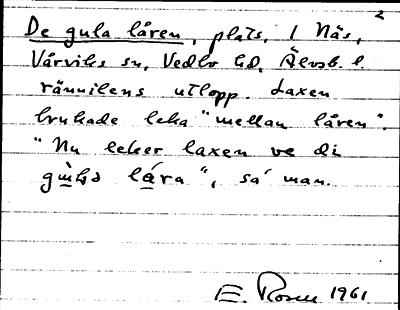 2
De gula låren, plats, i Näs,
Vårviks sn, Vedbo hd, Älvsb. l.
rännilens utlopp. Laxen
brukade leka "mellan låren".
"Nu leker laxen ve di
låra", sa man.
E. Rosen 1961